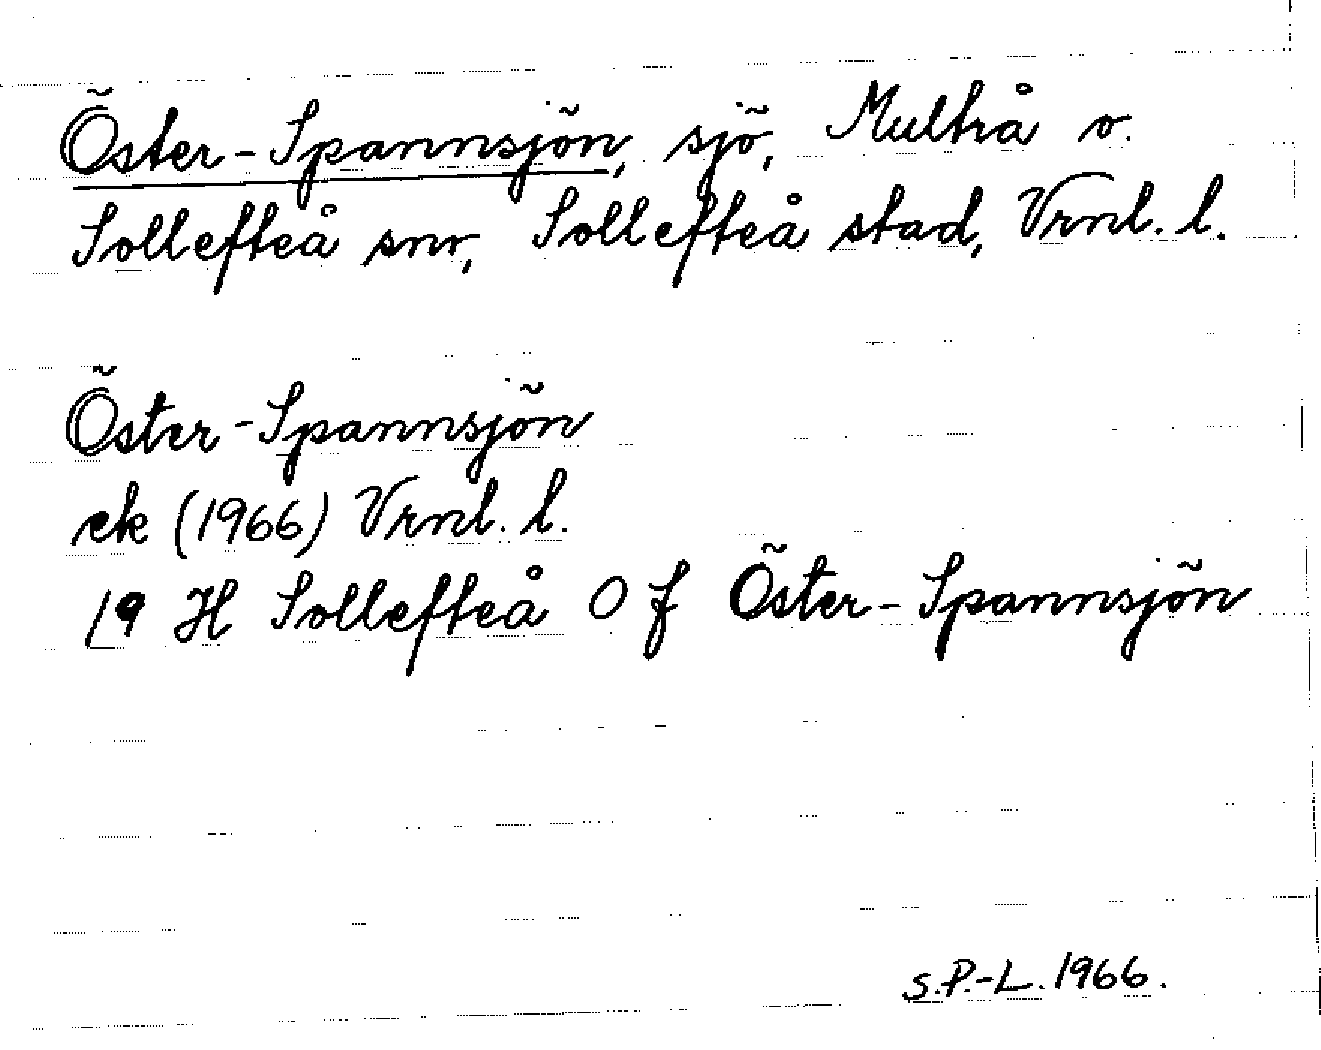 Öster-Spannsjön, sjö, Multrå o.
Sollefteå snr, Sollefteå stad, Vrnl. l.
Öster-Spannsjön
ek (1966) Vrnl. l.
19 H Sollefteå 0 f Öster-Spannsjön
S.P.-L. 1966.